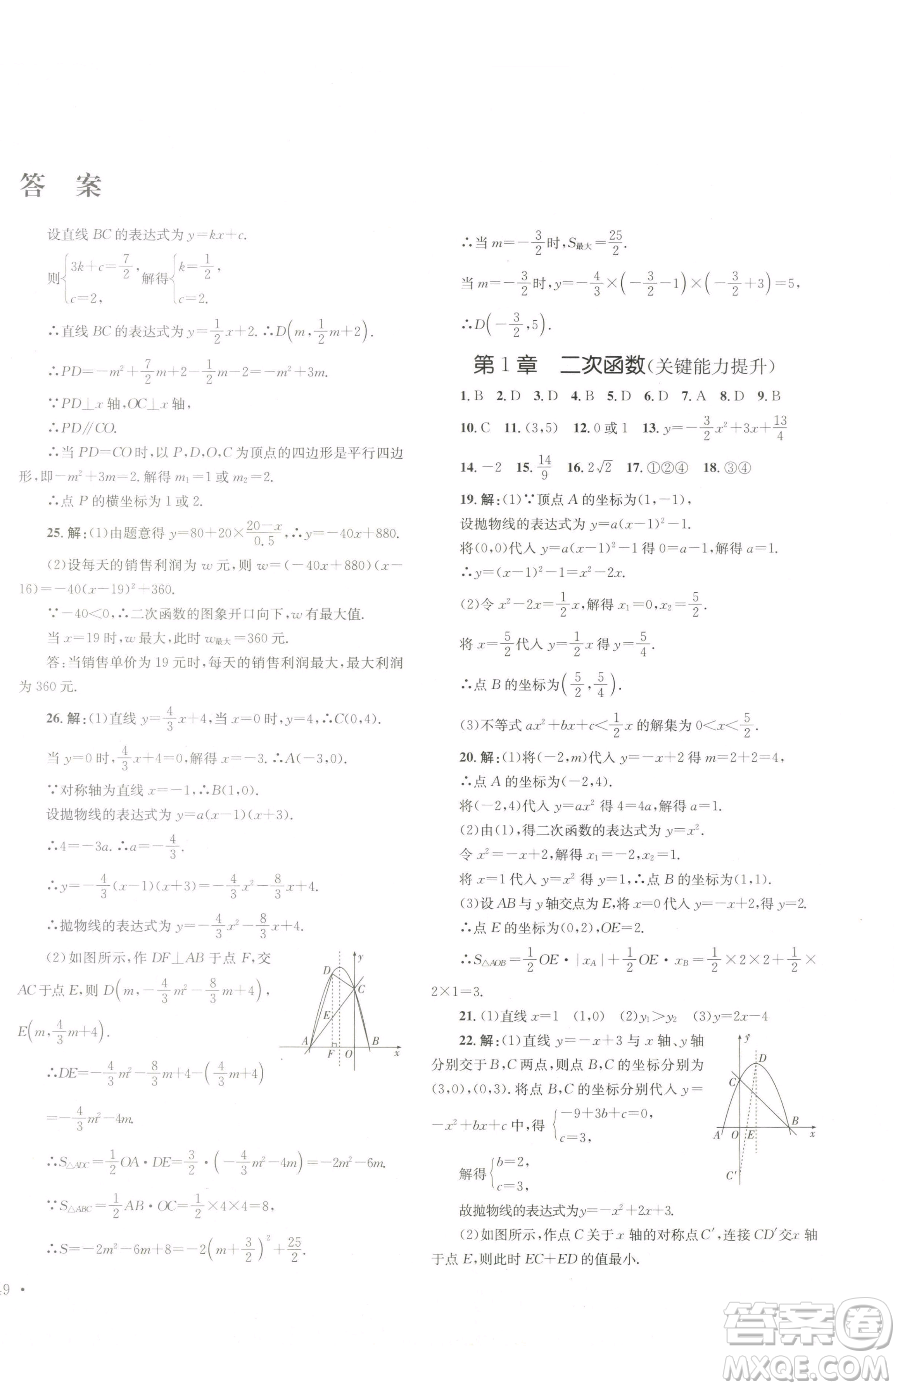 答 案
设直线 BC 的表达式为 y=kx+c.
则{3k+c=7/2, c=2, 解得{k=1/2, c=2.
∴直线 BC 的表达式为 y=1/2x+2. ∴D(m, 1/2m+2).
∴PD=-m²+7/2m+2-1/2m-2=-m²+3m.
∵PD⊥x 轴,OC⊥x 轴,
∴PD∥CO.
∴当 PD=CO 时,以 P,D,O,C 为顶点的四边形是平行四边
形,即-m²+3m=2. 解得 m₁=1,m₂=2.
∴点 P 的横坐标为 1 或 2.
25. 解:(1)由题意得 y=80+20×(20-x)/0.5,∴y=-40x+880.
(2)设每天的销售利润为 w 元,则 w=(-40x+880)(x-
16)=-40(x-19)²+360.
∵-40<0,∴二次函数的图象开口向下,w 有最大值.
当 x=19 时,w 最大,此时 w最大=360 元.
答:当销售单价为 19 元时,每天的销售利润最大,最大利润
为 360 元.
26. 解:(1)直线 y=4/3x+4,当 x=0 时,y=4,∴C(0,4).
当 y=0 时,4/3x+4=0,解得 x=-3. ∴A(-3,0).
∵对称轴为直线 x=-1,∴B(1,0).
设抛物线的表达式为 y=a(x-1)(x+3).
∴4=-3a. ∴a=-4/3.
∴y=-4/3(x-1)(x+3)=-4/3x²-8/3x+4.
∴抛物线的表达式为 y=-4/3x²-8/3x+4.
(2)如图所示,作 DF⊥AB 于点 F,交
AC于点 E,则 D(m, -4/3m²-8/3m+4),
E(m, 4/3m+4).
∴DE=-4/3m²-8/3m+4-4/3m-4
=-4/3m²-4m.
∴S△ADC=1/2OA·DE=3/2·(-4/3m²-4m)=-2m²-6m.
∵S△ABC=1/2AB·OC=1/2×4×4=8,
∴S=-2m²-6m+8=-2(m+3/2)²+25/2.
y
D
C
E
A
F
O
B
x
∴当 m=-3/2时,S最大=25/2.
当 m=-3/2时,y=-4/3×(-3/2-1)×(-3/2+3)=5,
∴D(-3/2,5).
第 1 章 二次函数(关键能力提升)
1. B 2. D 3. D 4. B 5. D 6. D 7. A 8. D 9. B
10. C 11. (3,5) 12. 0 或 1 13. y=-3/2x²+13/4
14. -2 15. 14/9 16. 2√2 17. ①②④ 18. ③④
19. 解:(1)∵顶点 A 的坐标为(1,-1),
设抛物线的表达式为 y=a(x-1)²-1.
将(0,0)代入得 0=a(0-1)²-1,解得 a=1.
∴抛物线的表达式为 y=(x-1)²-1=x²-2x.
(2)令 x²-2x=1/2x,解得 x₁=0,x₂=5/2.
将 x=5/2代入 y=1/2x,得 y=5/4.
∴点 B 的坐标为(5/2, 5/4).
(3)不等式 ax²+bx+c<1/2x 的解集为 0<x<5/2.
20. 解:(1)将(-2,m)代入 y=-x+2 得 m=2+2=4,
∴点 A 的坐标为(-2,4).
将(-2,4)代入 y=ax² 得 4=4a,解得 a=1.
(2)由(1),得二次函数的表达式为 y=x².
令 x²=-x+2,解得 x₁=-2,x₂=1.
将 x=1 代入 y=x²,得 y=1. ∴点 B 的坐标为(1,1).
(3)设 AB 与 y 轴交点为 E,将 x=0 代入 y=-x+2,得 y=2.
∴点 E 的坐标为(0,2),OE=2.
∴S△AOB=1/2OE·|xA|+1/2OE·xB=1/2×2×2+1/2×
2×1=3.
21. (1)直线 x=1 (1,0) (2)y₁>y₂ (3)y=2x-4
22. 解:(1)直线 y=-x+3 与 x 轴、y 轴
分别交于 B,C 两点,则点 B,C 的坐标分别为
(3,0),(0,3). 将点 B,C 的坐标分别代入 y=
-x²+bx+c 中,得{-9+3b+c=0, c=3.
解得{b=2, c=3.
故抛物线的表达式为y=-x²+2x+3.
(2)如图所示,作点 C 关于 x 轴的对称点 C′,连接 CD′交x轴
于点 E,则此时 EC+ED 的值最小.
y
D
C
A
O
E
B
x
C′
49 ·
答案圈
MXQE.COM